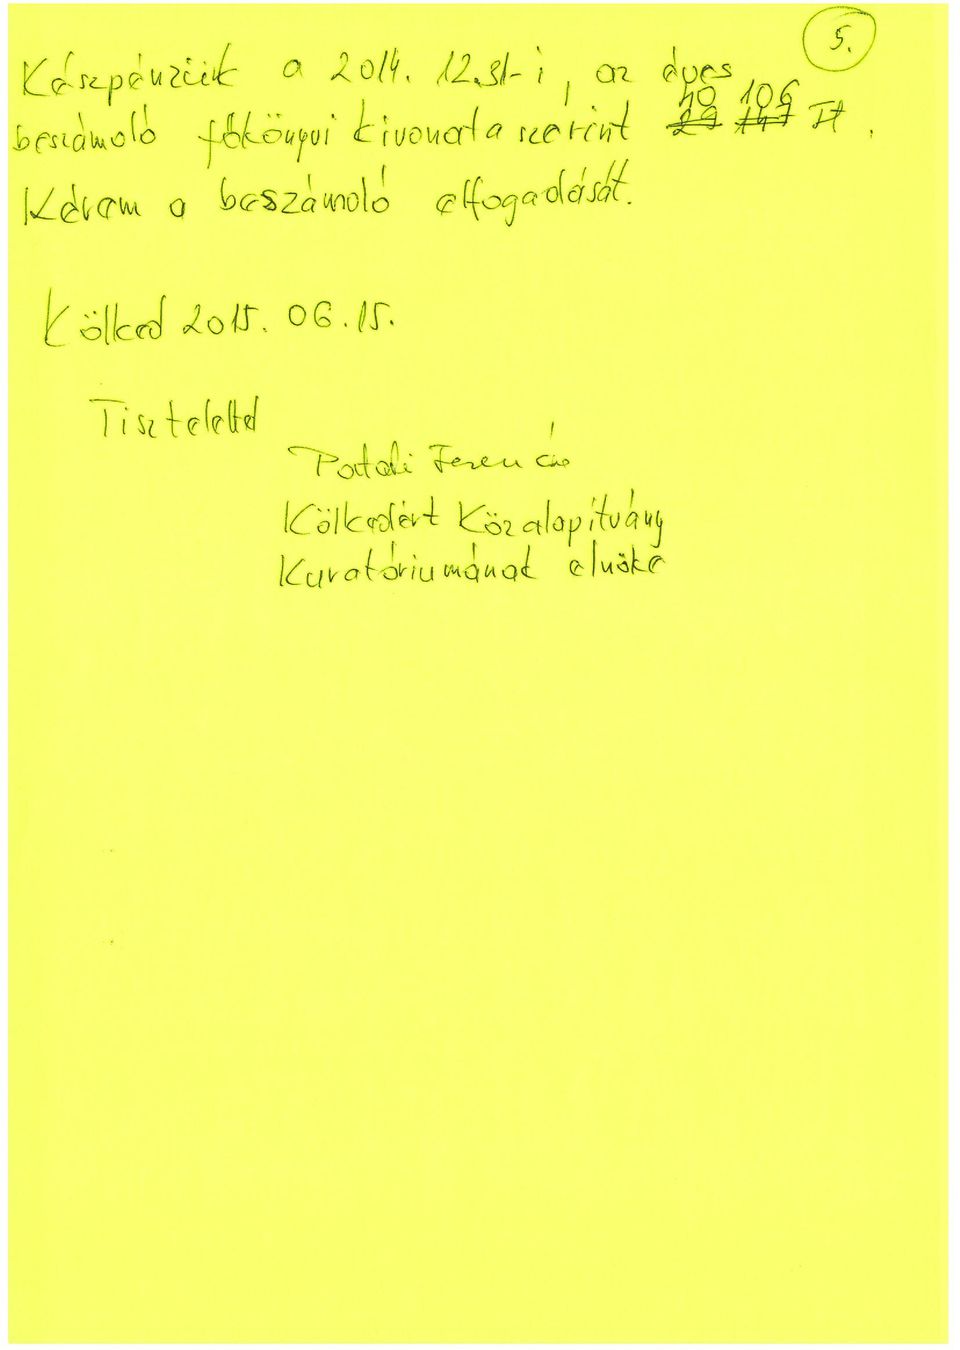 5.
Készpénzünk a 2014. 12.31-i, az éves
40 106
beszámoló főkönyvi kivonata szerint 29 147 Ft.
Kérem a beszámoló elfogadását.
Kölked 2015. 06. 15.
Tisztelettel
Ferencné
Kölkedért Közalapítvány
Kuratóriumának elnöke